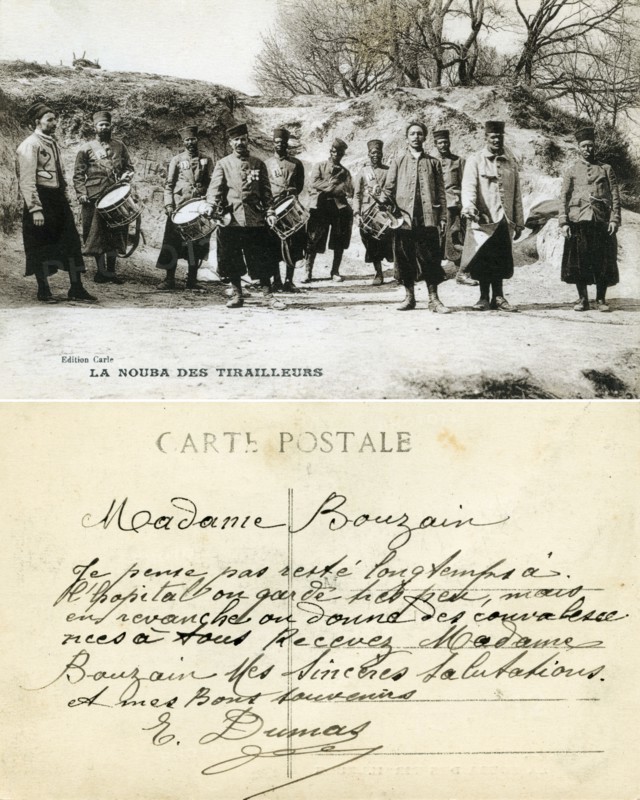 Edition Carle
LA NOUBA DES TIRAILLEURS
CARTE POSTALE
Madame Bouzain
Je pense pas resté longtemps à
l'hopital on garde tres peu, mais
en revanche on donne des convalesce
nces à tous Recevez Madame
Bouzain Mes Sincères Salutations.
et mes Bons souvenirs
E. Dumas